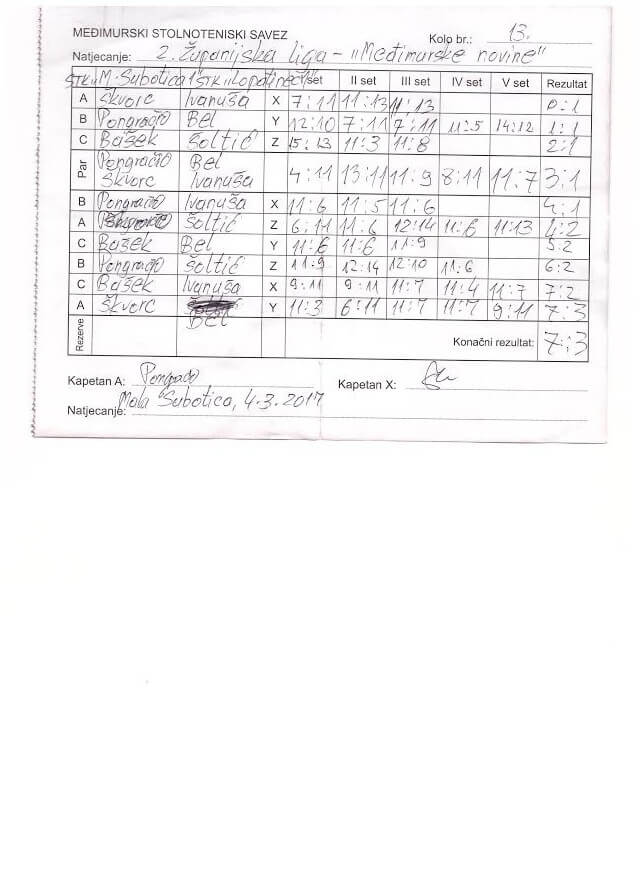 MEĐIMURSKI STOLNOTENISKI SAVEZ Kolo br.: 13.
Natjecanje: 2. Županijska liga - "Međimurske novine"
STK "M. Subotica" STK "Lopatinec" I set II set III set IV set V set Rezultat
A Škvorc Ivanuša X 7:11 11:13 11:13 0:1
B Pongračio Bel Y 12:10 7:11 7:11 11:5 14:12 1:1
C Bašek Šoltić Z 15:13 11:3 11:8 2:1
Par Pongračio Bel
Škvorc Ivanuša 4:11 13:11 11:9 8:11 11:7 3:1
B Pongračio Ivanuša X 11:6 11:5 11:6 4:1
A Šoltić Z 6:11 11:6 12:14 11:6 11:13 4:2
C Bašek Bel Y 11:6 11:6 11:9 5:2
B Pongračio Šoltić Z 11:9 12:14 12:10 11:6 6:2
C Bašek Ivanuša X 9:11 9:11 11:7 11:4 11:7 7:2
A Škvorc Bel Y 11:3 6:11 11:7 11:7 9:11 7:3
Rezerve Konačni rezultat: 7:3
Kapetan A: Pongračio Kapetan X:
Natjecanje: Mala Subotica, 4.3.2017